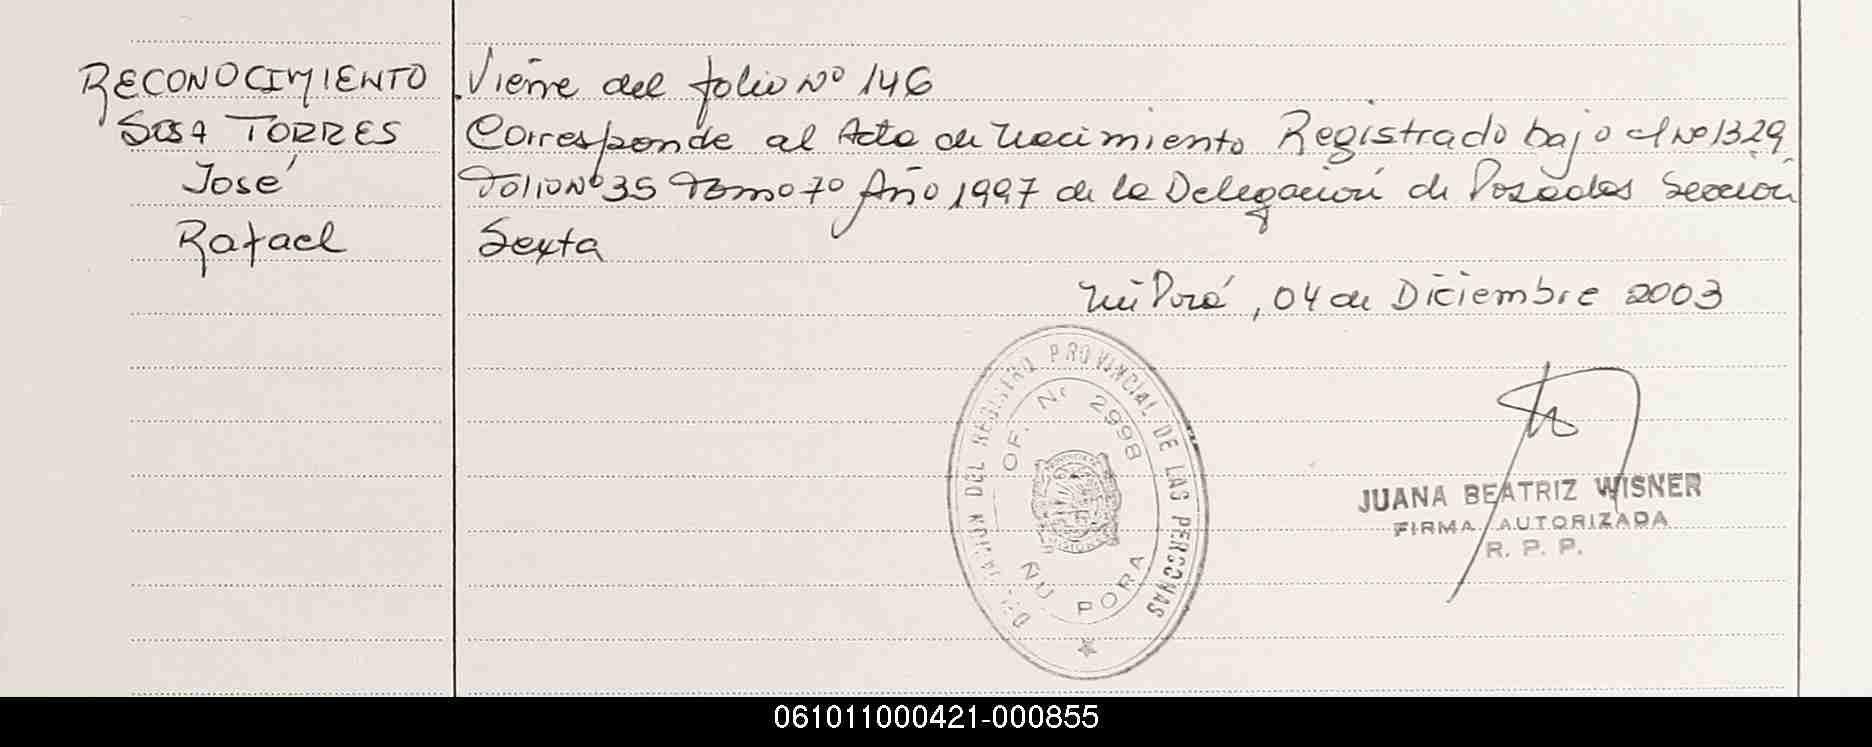 RECONOCIMIENTO
SOSA TORRES
José
Rafael
Viene del folio Nº 146
Corresponde al Acta de Nacimiento Registrado bajo el Nº 1329
Folio Nº 35 Tomo 7º Año 1997 de la Delegación de Posadas Sección
Sexta
Ñu Porá, 04 de Diciembre 2003
DEL REGISTRO PROVINCIAL DE LAS PERSONAS
OF. Nº 2998
ÑU PORA
JUANA BEATRIZ WISNER
FIRMA AUTORIZADA
R. P. P.
061011000421-000855